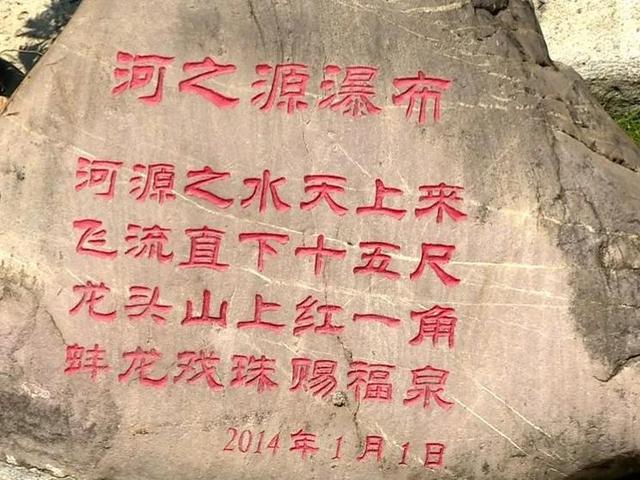 河之源瀑布
河源之水天上来
飞流直下十五尺
龙头山上红一角
蚌龙戏珠赐福泉
2014年1月1日